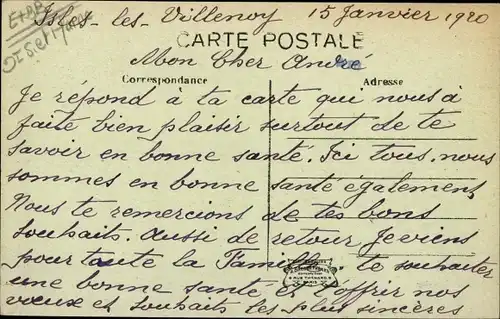 Isles-les-Villenoy 15 Janvier 1920
CARTE POSTALE
Mon Cher André
Correspondance Adresse
Je répond à ta carte qui nous à
faite bien plaisir surtout de te
savoir en bonne santé. Ici tous, nous
sommes en bonne santé également
Nous te remercions de tes bons
souhaits. Aussi de retour Je viens
pour toute la Famille te souhaiter
une bonne santé et t'offrir nos
voeux et souhaits les plus sincères